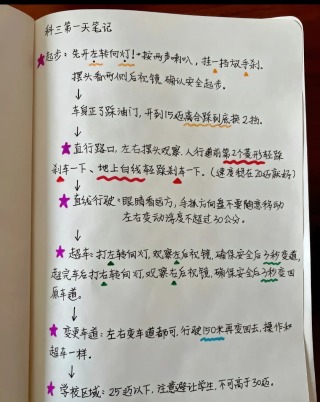 科三第一天笔记
★起步：先开左转向灯！按两声喇叭，挂一挡放手刹.
摆头看两侧后视镜，确认安全起步.
↓
车身正了踩油门，开到15迈离合踩到底换2挡.
↓
★直行路口，左右摆头观察，人行道前第2个菱形轻踩
刹车一下、地上白线轻踩刹车一下。（速度稳在20迈
↓
★直线行驶：眼睛看远方，手抓方向盘不要随意移动
左右变动浮度不超过30公分。
↓
★超车：打左转向灯，观察左后视镜，确保安全后3秒变道，
超完车后打右转向灯，观察右后视镜，确保安全后3秒变回
原车道。
↓
★变更车道：左右变车道都可，行驶150米再变回去，操作和
超车一样。
↓
★学校区域：25迈以下，注意避让学生，不可高于30迈.